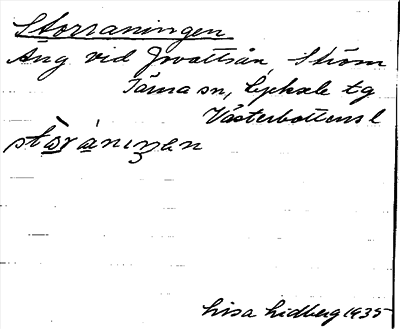 Storraningen
Äng vid Jovattsån, Ström
Tärna sn, Lycksele tg
Västerbottens l
stɷ̀rániŋən
Lisa Lidberg 1935